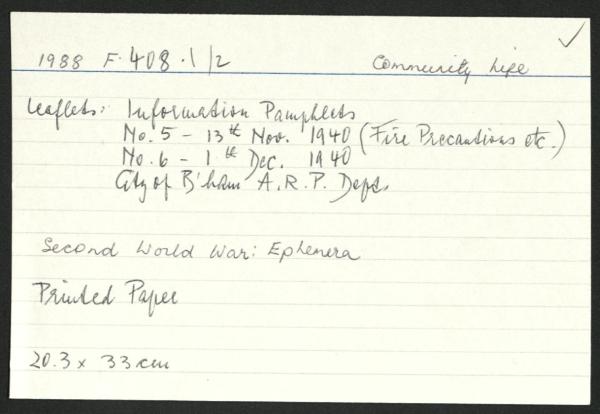 1988 F. 408.1/2 Community Life
Leaflets: Information Pamphlets
No. 5 - 13th Nov. 1940 (Fire Precautions etc.)
No. 6 - 1th Dec. 1940
City of B'ham A.R.P. Dept.
Second World War: Ephemera
Printed Paper
20.3 x 33 cm